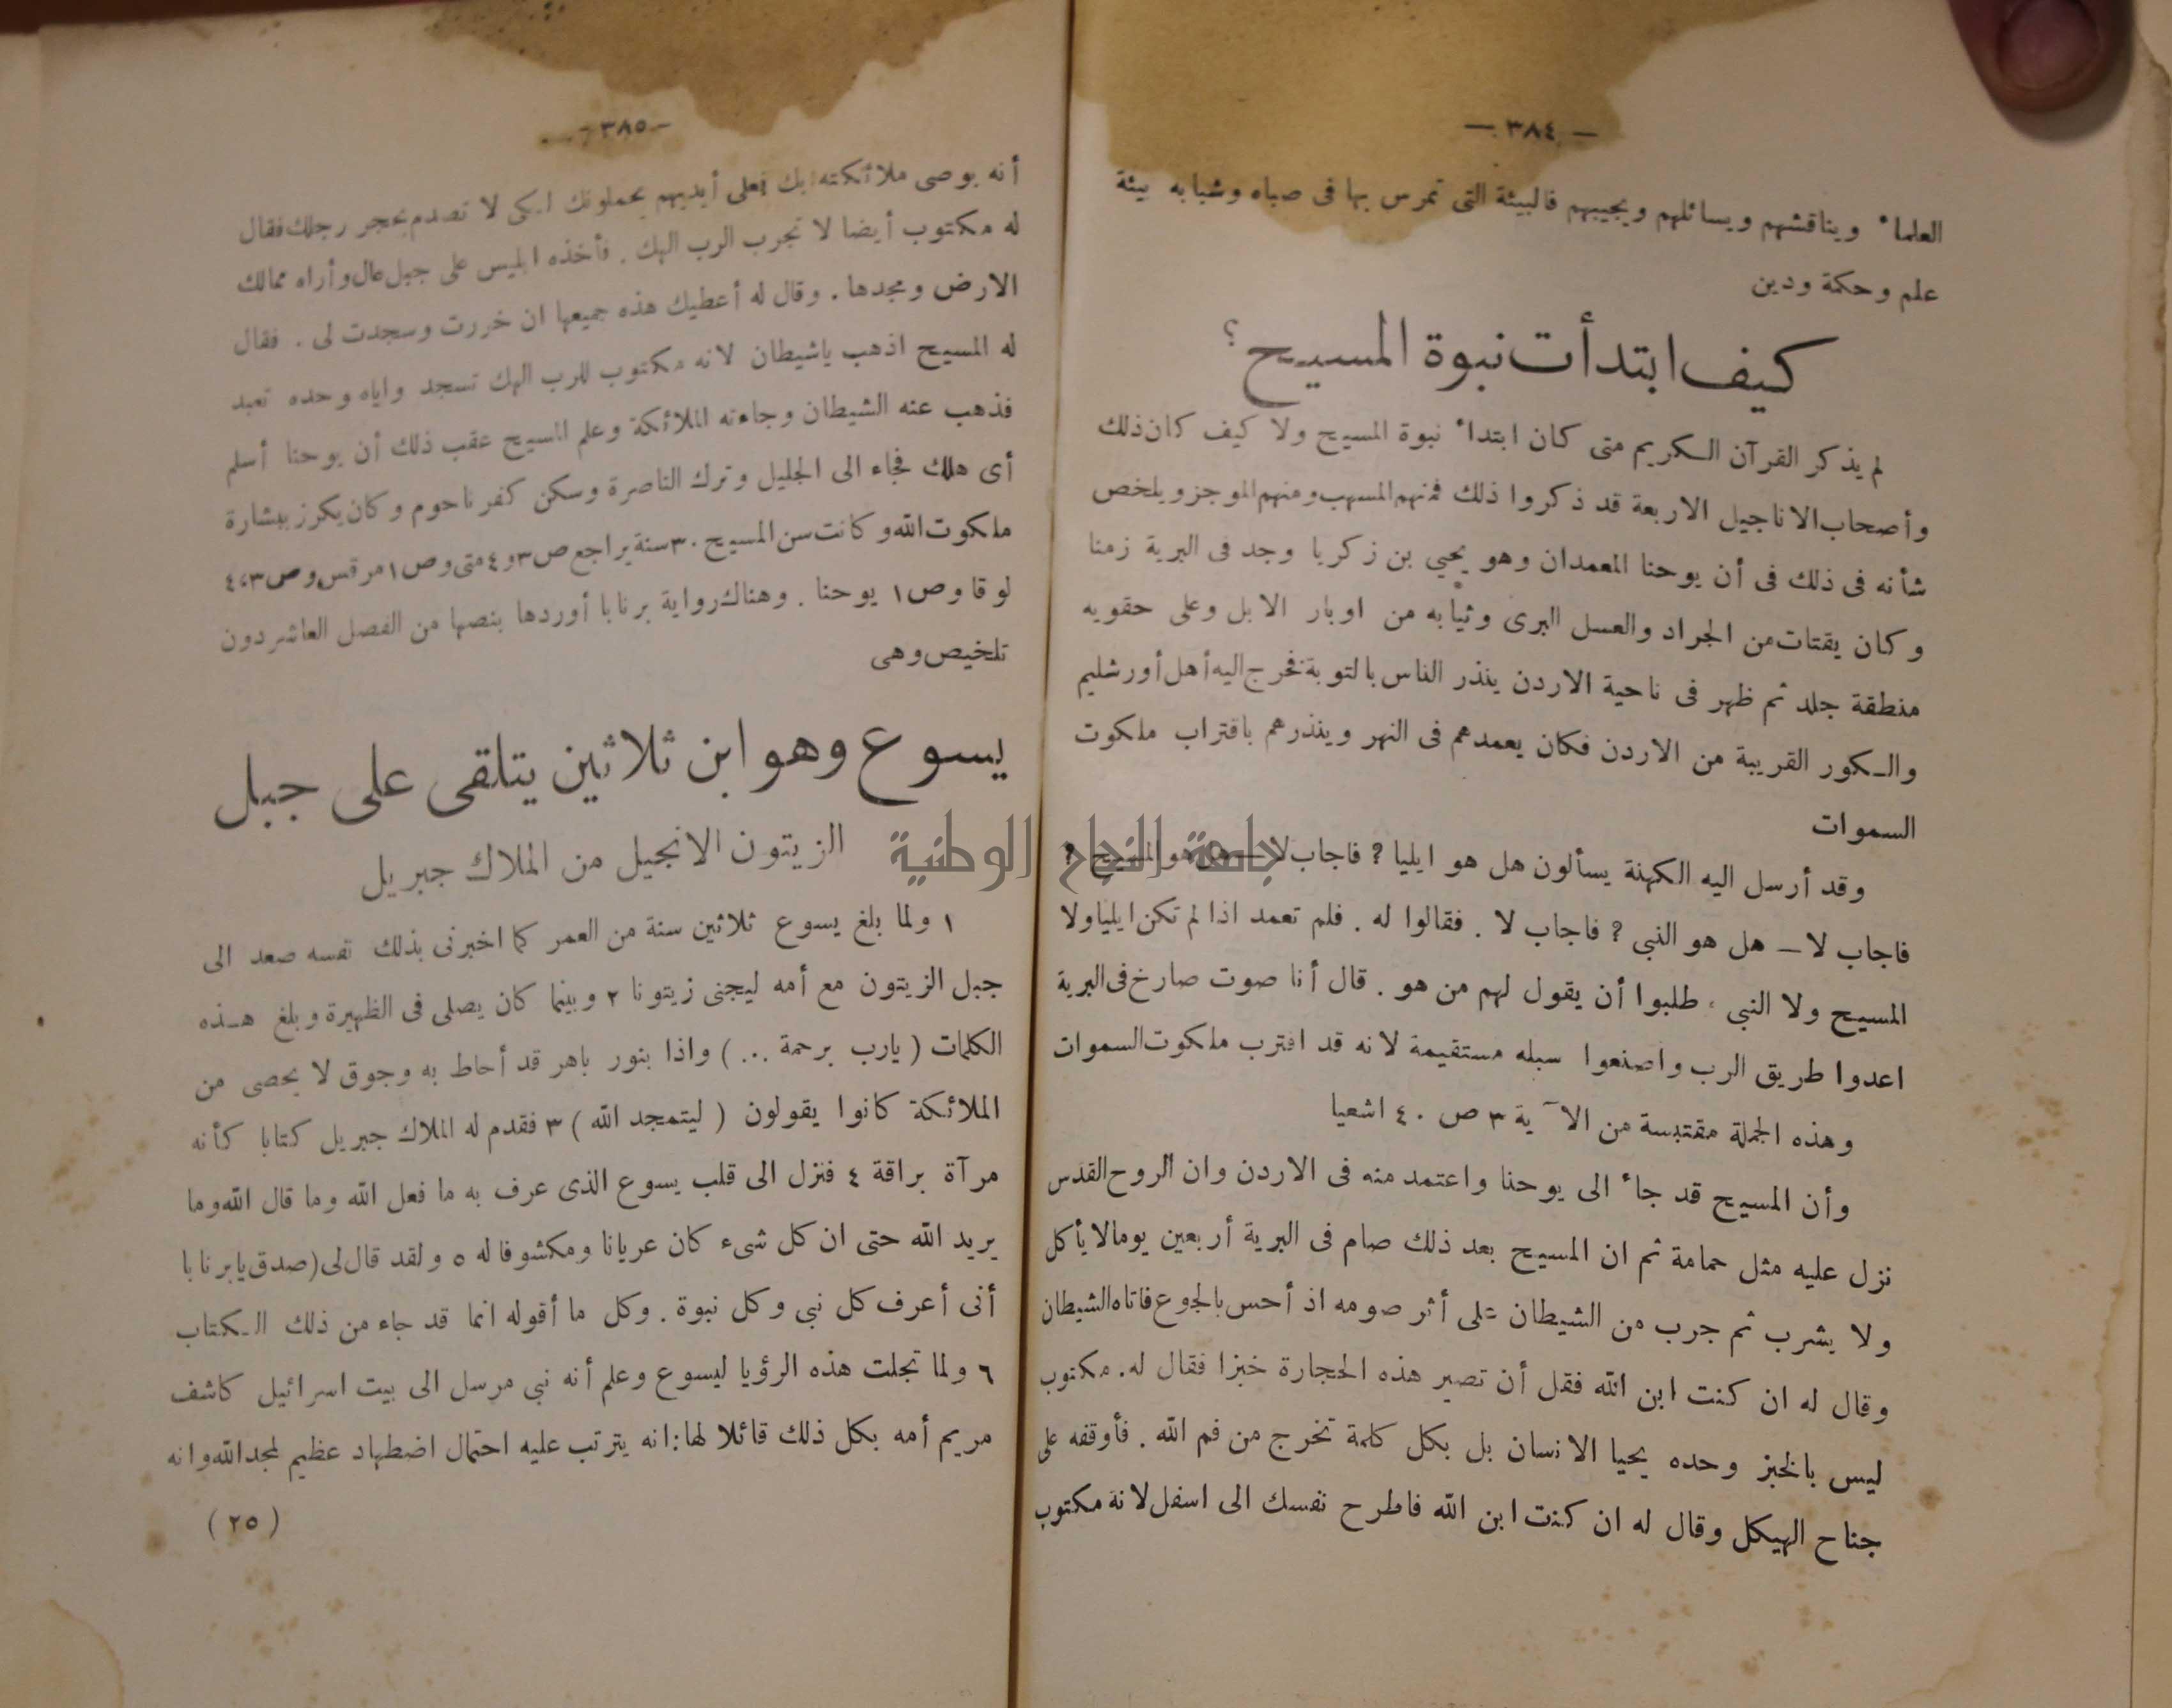 — ٣٨٤ —
العلماء ويناقشهم ويسائلهم ويجيبهم فالبيئة التى تمرس بها فى صباه وشبابه بيئة
علم وحكمة ودين
كيف ابتدأت نبوة المسيح ؟
لم يذكر القرآن الكريم متى كان ابتداء نبوة المسيح ولا كيف كان ذلك
وأصحاب الاناجيل الاربعة قد ذكروا ذلك فمنهم المسهب ومنهم الموجز ويلخص
شأنه فى ذلك فى أن يوحنا المعمدان وهو يحيي بن زكريا وجد فى البرية زمنا
وكان يقتات من الجراد والعسل البرى وثيابه من اوبار الابل وعلى حقويه
منطقة جلد ثم ظهر فى ناحية الاردن ينذر الناس بالتوبة فخرج اليه أهل أورشليم
والكور القريبة من الاردن فكان يعمدهم فى النهر وينذرهم باقتراب ملكوت
السموات
وقد أرسل اليه الكهنة يسألون هل هو ايليا ? فاجاب لا — هل هو المسيح ?
فاجاب لا — هل هو النبى ? فاجاب لا . فقالوا له . فلم تعمد اذا لم تكن ايليا ولا
المسيح ولا النبى ، طلبوا أن يقول لهم من هو . قال أنا صوت صارخ فى البرية
اعدوا طريق الرب واصنعوا سبله مستقيمة لانه قد اقترب ملكوت السموات
وهذه الجملة مقتبسة من الآية ٣ ص ٤٠ اشعيا
وأن المسيح قد جاء الى يوحنا واعتمد منه فى الاردن وان الروح القدس
نزل عليه مثل حمامة ثم ان المسيح بعد ذلك صام فى البرية أربعين يوما لا يأكل
ولا يشرب ثم جرب من الشيطان على أثر صومه اذ أحس بالجوع فاتاه الشيطان
وقال له ان كنت ابن الله فقل أن تصير هذه الحجارة خبزا فقال له . مكتوب
ليس بالخبز وحده يحيا الانسان بل بكل كلمة تخرج من فم الله . فأوقفه على
جناح الهيكل وقال له ان كنت ابن الله فاطرح نفسك الى اسفل لانه مكتوب
— ٣٨٥ —
أنه يوصى ملائكته بك فعلى أيديهم يحملونك لكى لا تصدم بحجر رجلك فقال
له مكتوب أيضا لا تجرب الرب الهك . فأخذه ابليس على جبل عال وأراه ممالك
الارض ومجدها . وقال له أعطيك هذه جميعها ان خررت وسجدت لى . فقال
له المسيح اذهب ياشيطان لانه مكتوب للرب الهك تسجد واياه وحده تعبد
فذهب عنه الشيطان وجاءته الملائكة وعلم المسيح عقب ذلك أن يوحنا أسلم
أى هلك فجاء الى الجليل وترك الناصرة وسكن كفر ناحوم وكان يكرز ببشارة
ملكوت الله وكانت سن المسيح ٣٠ سنة يراجع ص ٣ و ٤ متى وص ١ مرقس وص ٣، ٤
لوقا وص ١ يوحنا . وهناك رواية برنابا أوردها بنصها من الفصل العاشر دون
تلخيص وهى
يسوع وهو ابن ثلاثين يتلقى على جبل
الزيتون الانجيل من الملاك جبريل
١ ولما بلغ يسوع ثلاثين سنة من العمر كما اخبرنى بذلك نفسه صعد الى
جبل الزيتون مع أمه ليجنى زيتونا ٢ وبينما كان يصلى فى الظهيرة وبلغ هذه
الكلمات ( يارب برحمة ... ) واذا بنور باهر قد أحاط به وجوق لا يحصى من
الملائكة كانوا يقولون ( ليتمجد الله ) ٣ فقدم له الملاك جبريل كتابا كأنه
مرآة براقة ٤ فنزل الى قلب يسوع الذى عرف به ما فعل الله وما قال الله وما
يريد الله حتى ان كل شىء كان عريانا ومكشوفا له ٥ ولقد قال لى (صدق يابرنابا
أنى أعرف كل نبى وكل نبوة . وكل ما أقوله انما قد جاء من ذلك الكتاب
٦ ولما تجلت هذه الرؤيا ليسوع وعلم أنه نبى مرسل الى بيت اسرائيل كاشف
مريم أمه بكل ذلك قائلا لها : انه يترتب عليه احتمال اضطهاد عظيم لمجد الله وانه
( ٢٥ )
جامعة النجاح الوطنية